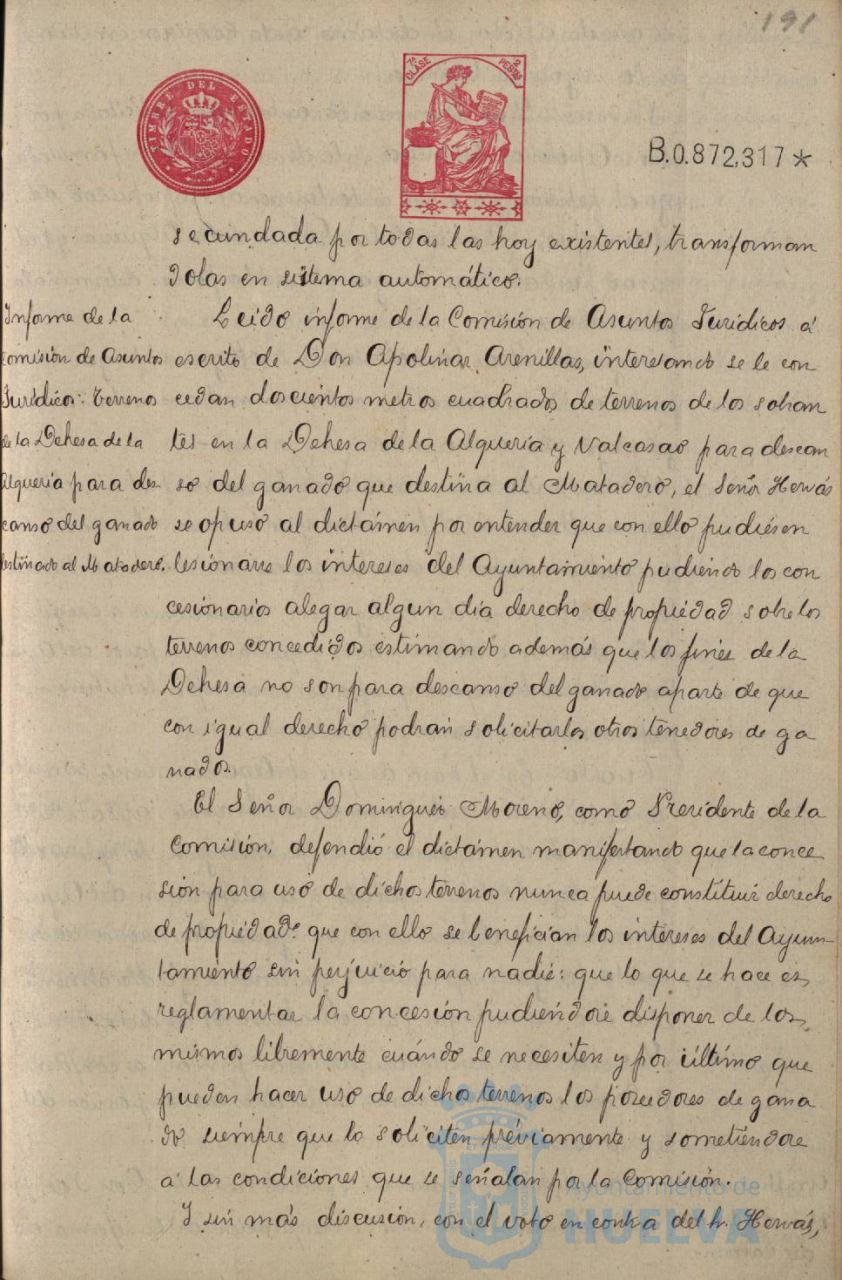 191
TIMBRE DEL ESTADO
7ª CLASE
2 PESETAS
B.0.872.317*
secundada por todas las hoy existentes, transforman
dolas en sistema automático.
Informe de la
Comisión de Asuntos
Jurídicos: terrenos
de la Dehesa de la
Alquería para des
canso del ganado
destinado al Matadero.
Leido informe de la Comisión de Asuntos Jurídicos á
escrito de Don Apolinar Arenillas, interesando se le con
cedan doscientos metros cuadrados de terrenos de los sobran
tes en la Dehesa de la Alquería y Valcasao para descan
so del ganado que destina al Matadero, el Señor Hervás
se opuso al dictámen por entender que con ello pudiesen
lesionarse los intereses del Ayuntamiento pudiendo los con
cesionarios alegar algun dia derecho de propiedad sobre los
terrenos concedidos estimando además que los fines de la
Dehesa no son para descanso del ganado aparte de que
con igual derecho podrán solicitarlos otros tenedores de ga
nados.
El Señor Dominguez Moreno, como Presidente de la
Comisión, defendió el dictámen manifestando que la conce
sión para uso de dichos terrenos nunca puede constituir derecho
de propiedad: que con ello se benefician los intereses del Ayun-
tamiento sin perjuicio para nadie: que lo que se hace es
reglamentar la concesión pudiéndose disponer de los
mismos libremente cuándo se necesiten y por último que
pueden hacer uso de dichos terrenos los poseedores de gana
do siempre que lo soliciten préviamente y sometiéndose
á las condiciones que se señalan por la Comisión.
Y sin más discusión, con el voto en contra del Sr. Hervás,
Ayuntamiento de
HUELVA